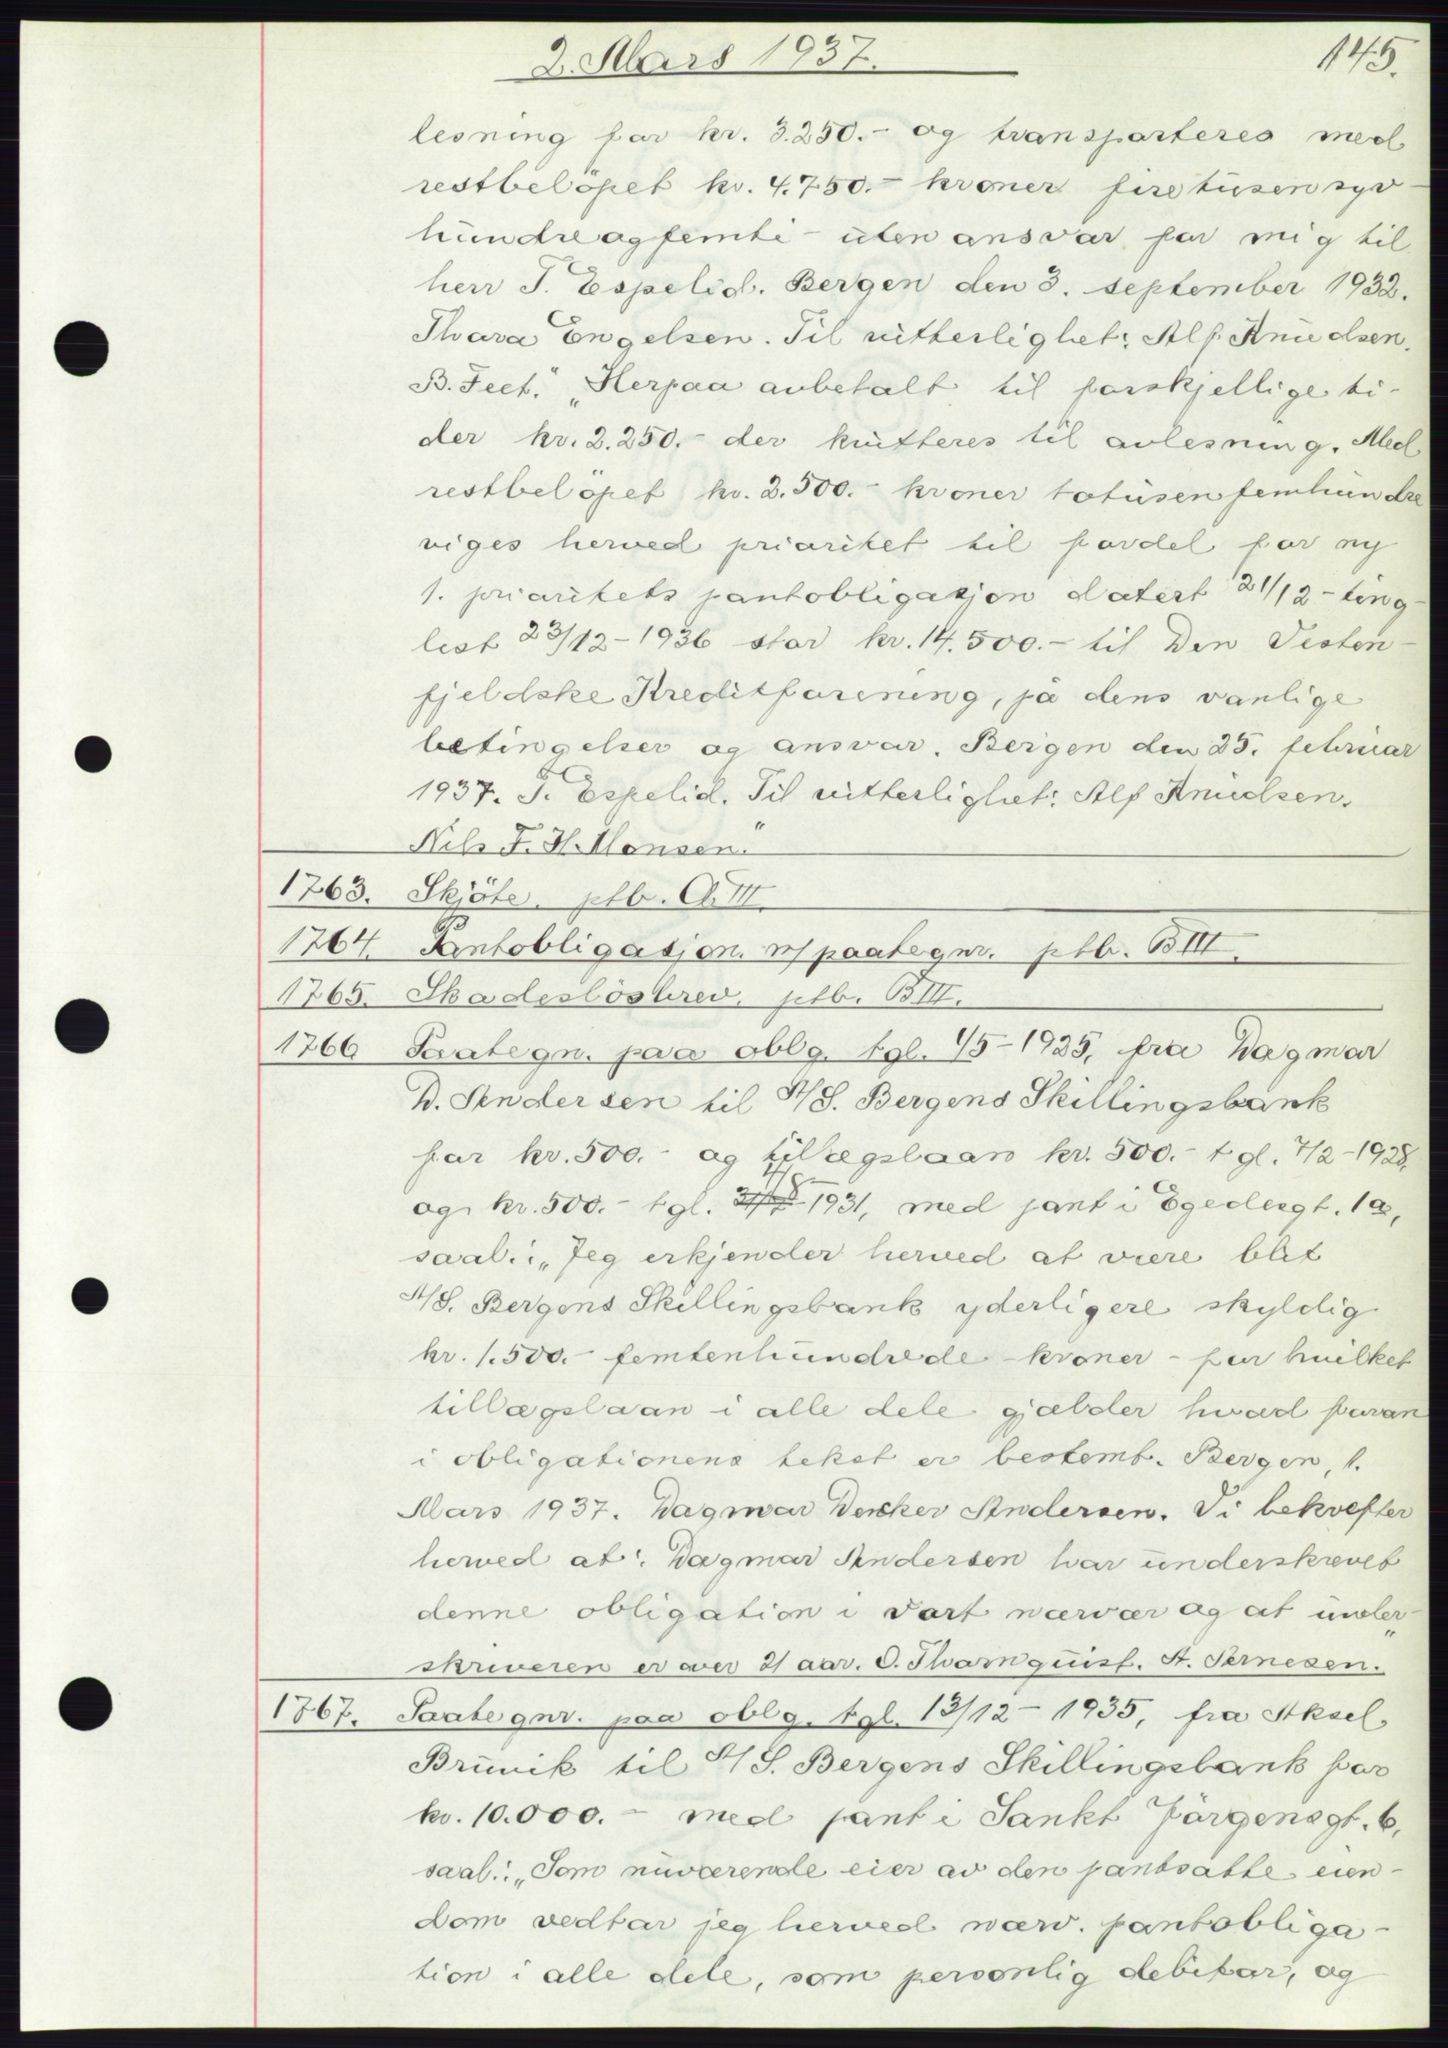 2. Mars 1937.
145.
lesning for kr. 3.250.- og transporteres med
restbelöpet kr. 4.750.- kroner firetusensyv-
hundreogfemti - uten ansvar for mig til
herr T. Espelid. Bergen den 3. september 1932.
Thora Engelsen. Til vitterlighet: Alf Knudsen.
B. Feet." „Herpaa avbetalt til forskjellige ti-
der kr. 2.250.- der kvitteres til avlesning. Med
restbelöpet kr. 2.500.- kroner totusenfemhundre
viges herved prioritet til fordel for ny
1. prioritets pantobligasjon datert 21/12 - ting-
lest 23/12 - 1936 stor kr. 14.500.- til Den Vesten-
fjeldske Kreditforening, på dens vanlige
betingelser og ansvar. Bergen den 25. februar
1937. T. Espelid. Til vitterlighet: Alf Knudsen.
Nils F. H. Monsen."
1763. Skjöte. ptb. A III.
1764. Pantobligasjon. m/ paategn. ptb. B III.
1765. Skadeslösbrev. ptb. B III.
1766 Paategn. paa oblg. tgl. 1/5 - 1925, fra Dagmar
D. Andersen til A/S. Bergens Skillingsbank
for kr. 500.- og tillægslaan kr. 500.- tgl. 7/2 - 1928,
og kr. 500.- tgl. 1931, med pant i Egedesgt. 1a,
saal.: „Jeg erkjender herved at være blit
A/S. Bergens Skillingsbank yderligere skyldig
kr. 1.500.- femtenhundrede - kroner - for hvilket
tillægslaan i alle dele gjælder hvad foran
i obligationens tekst er bestemt. Bergen, 1.
Mars 1937. Dagmar Decker Andersen. Vi bekrefter
herved at: Dagmar Andersen har underskrevet
denne obligation i vort nærvær og at under-
skriveren er over 21 aar. O. Thornquist. A. Pernesen."
1767. Paategn. paa oblg. tgl. 13/12 - 1935, fra Aksel
Brüvik til A/S. Bergens Skillingsbank for
kr. 10.000.- med pant i Sankt Jörgensgt. 6,
saal.: „Som nuværende eier av den pantsatte eien-
dom vedtar jeg herved nærv. pantobliga-
tion i alle dele, som personlig debitor, og